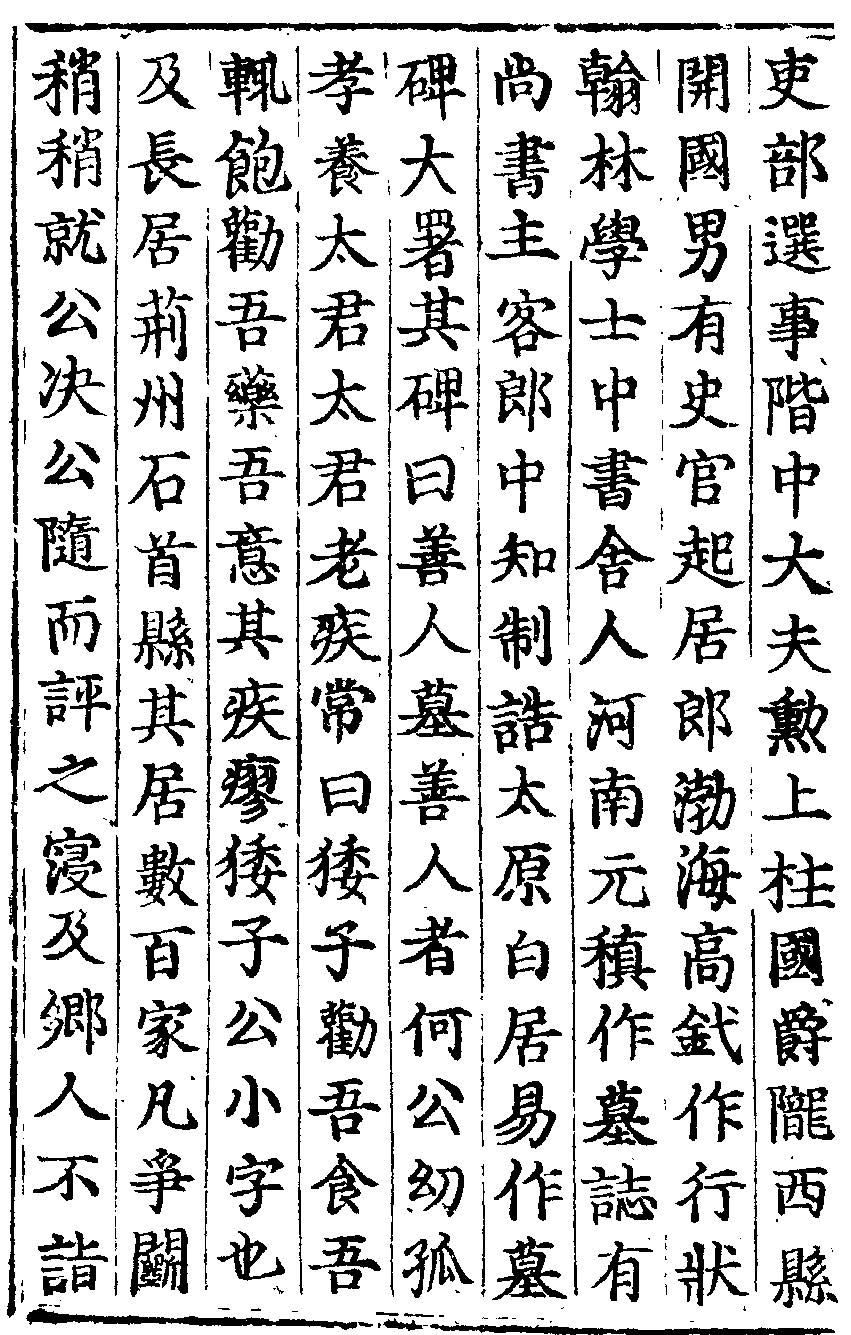 吏部選事階中大夫勳上柱國爵隴西縣
開國男有史官起居郎渤海高釴作行狀
翰林學士中書舍人河南元稹作墓誌有
尚書主客郎中知制誥太原白居易作墓
碑大署其碑曰善人墓善人者何公幼孤
孝養太君太君老疾常曰㹻子勸吾食吾
輒飽勸吾藥吾意其疾瘳㹻子公小字也
及長居荊州石首縣其居數百家凡爭鬭
稍稍就公決公隨而評之寖及鄉人不詣